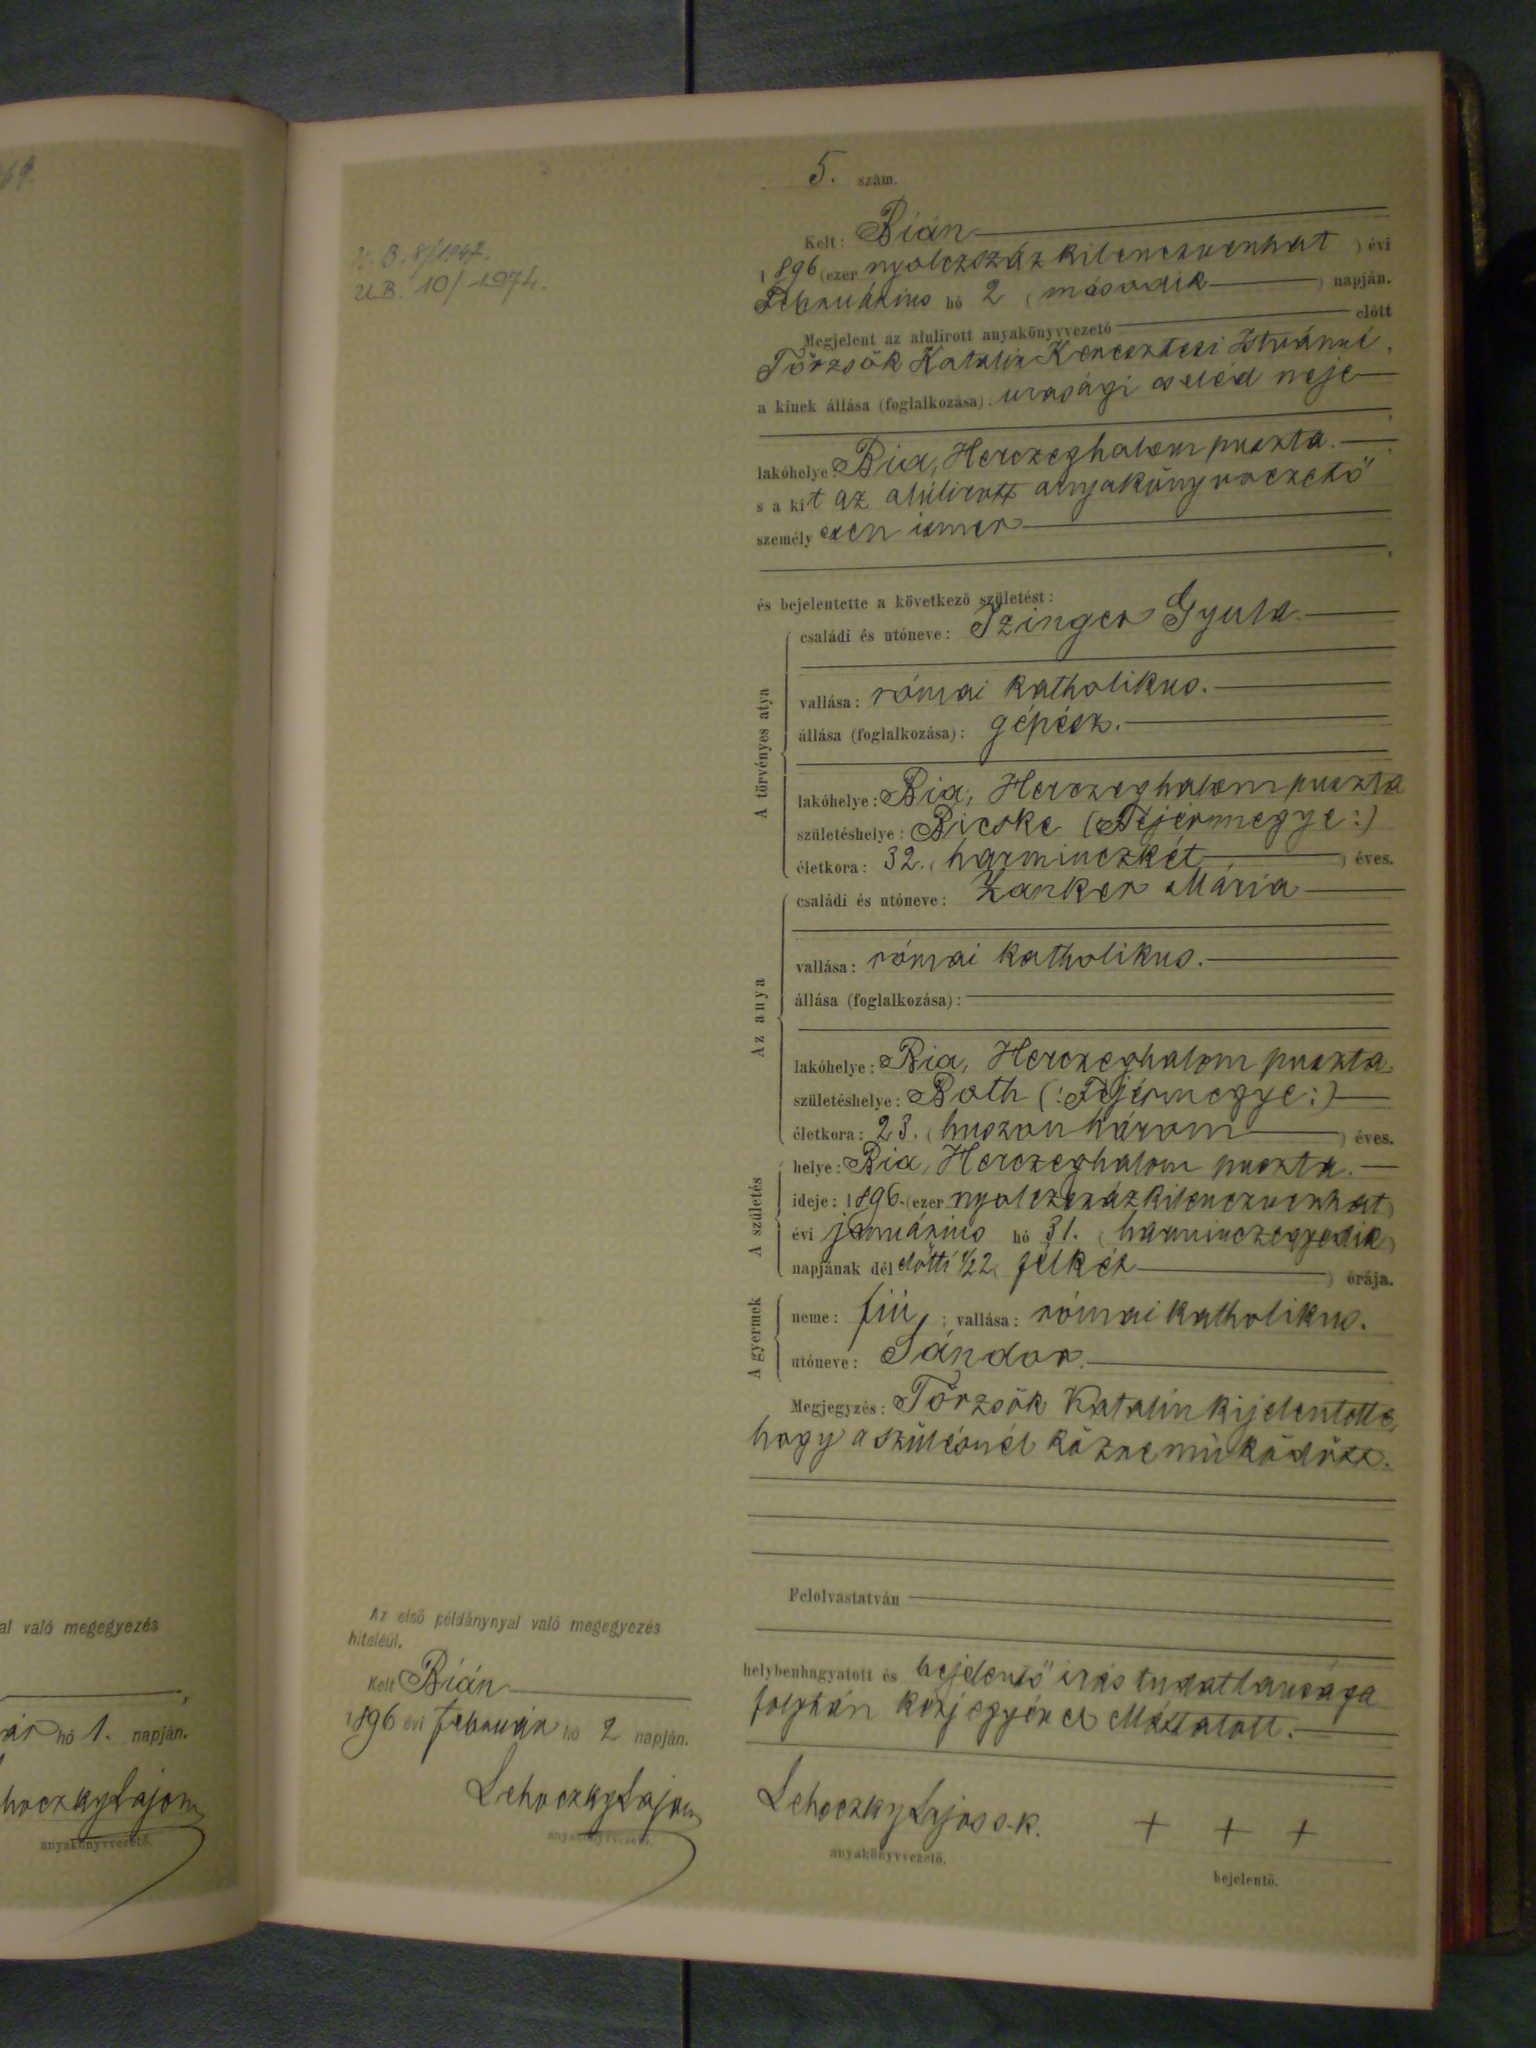 5. szám.
Kelt: Bián
1896 (ezer nyolczszáz kilenczvenhat) évi
Február​ius hó 2 (második) napján.
Megjelent az alulirott anyakönyvvezető előtt
Törzsök Katalin Keresztesi Istvánné,
a kinek állása (foglalkozása): urasági cseléd neje
lakóhelye: Bia, Herczeghalom puszta.
s a kit az alúlirott anyakönyvvezető
személyesen ismer
és bejelentette a következő születést:
A törvényes atya
családi és utóneve: Szinger Gyula.
vallása: római katholikus.
állása (foglalkozása): gépész.
lakóhelye: Bia, Herczeghalom puszta
születéshelye: Bicske (: Fejérmegye :)
életkora: 32. (harminczkét) éves.
Az anya
családi és utóneve: Zanker Mária
vallása: római katholikus.
állása (foglalkozása):
lakóhelye: Bia, Herczeghalom puszta.
születéshelye: Both (: Fejérmegye :)
életkora: 23. (huszonhárom) éves.
A születés
helye: Bia, Herczeghalom puszta.
ideje: 1896. (ezer nyolczszáz kilenczvenhat)
évi január​ius hó 31. (harminczegyedik)
napjának délelőtti 1/22 (félkét) órája.
A gyermek
neme: fiú; vallása: római katholikus.
utóneve: Sándor.
Megjegyzés: Törzsök Katalin kijelentette,
hogy a szülésnél közremüködött.
Felolvastatván
helybenhagyatott és bejelentő irás tudatlansága
folytán kézjegyével elláttatott.
Lehoczky Lajos s.k. + + +
anyakönyvvezető. bejelentő.
U.B. 8/1947.
U.B. 10/1974.
Az első példánynyal való megegyezés
hiteléül.
Kelt Bián
1896 évi február hó 2 napján.
Lehoczky Lajos
anyakönyvvezető.
al való megegyezés
ár hó 1. napján.
hoczky Lajos
anyakönyvvezető.